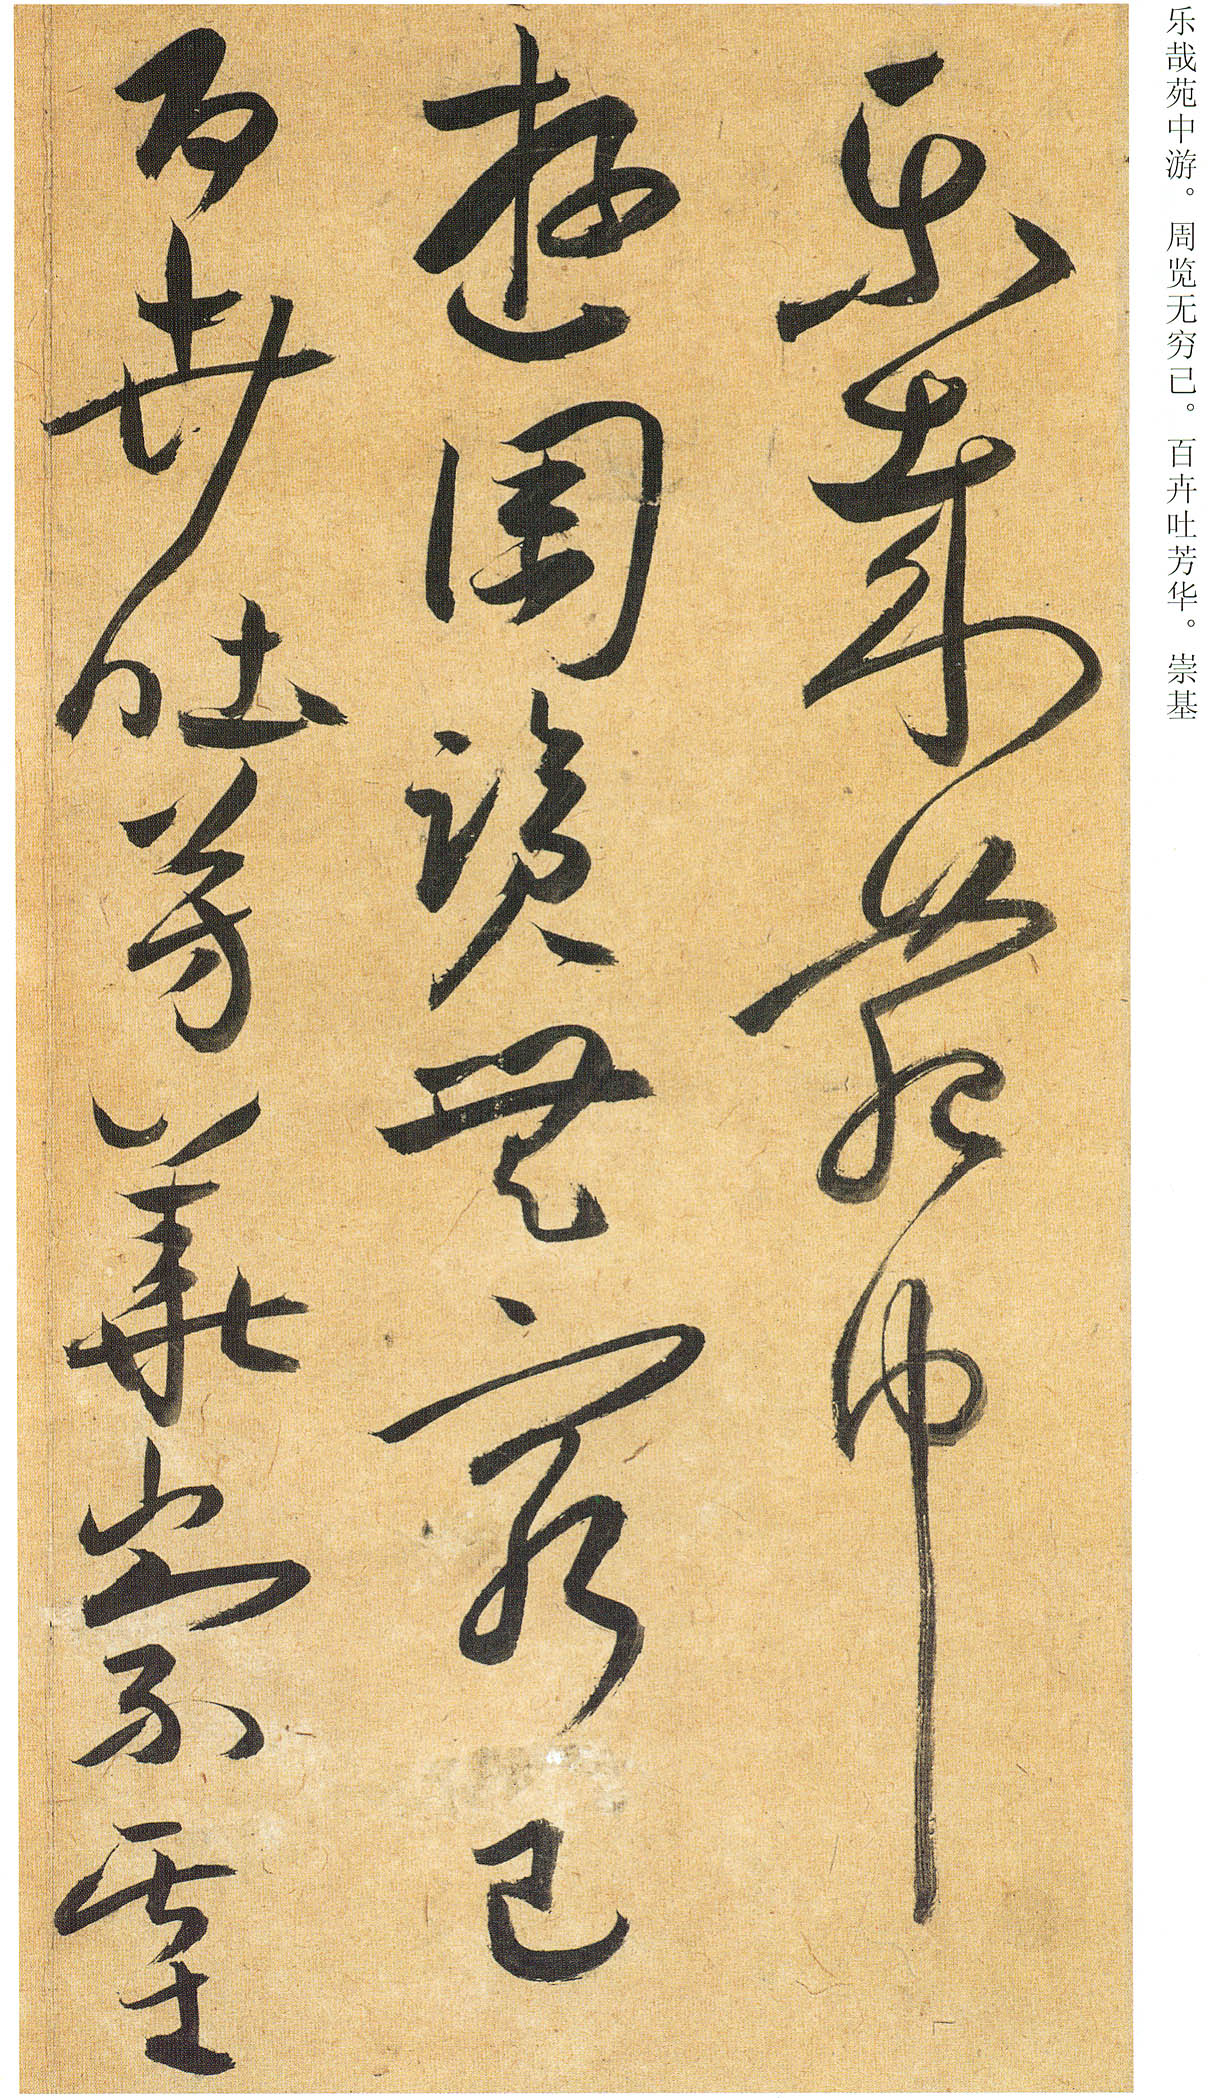 乐哉苑中游。周览无穷已。百卉吐芳华。崇基
樂哉苑中
遊周覽無窮已
百卉吐芳華崇基